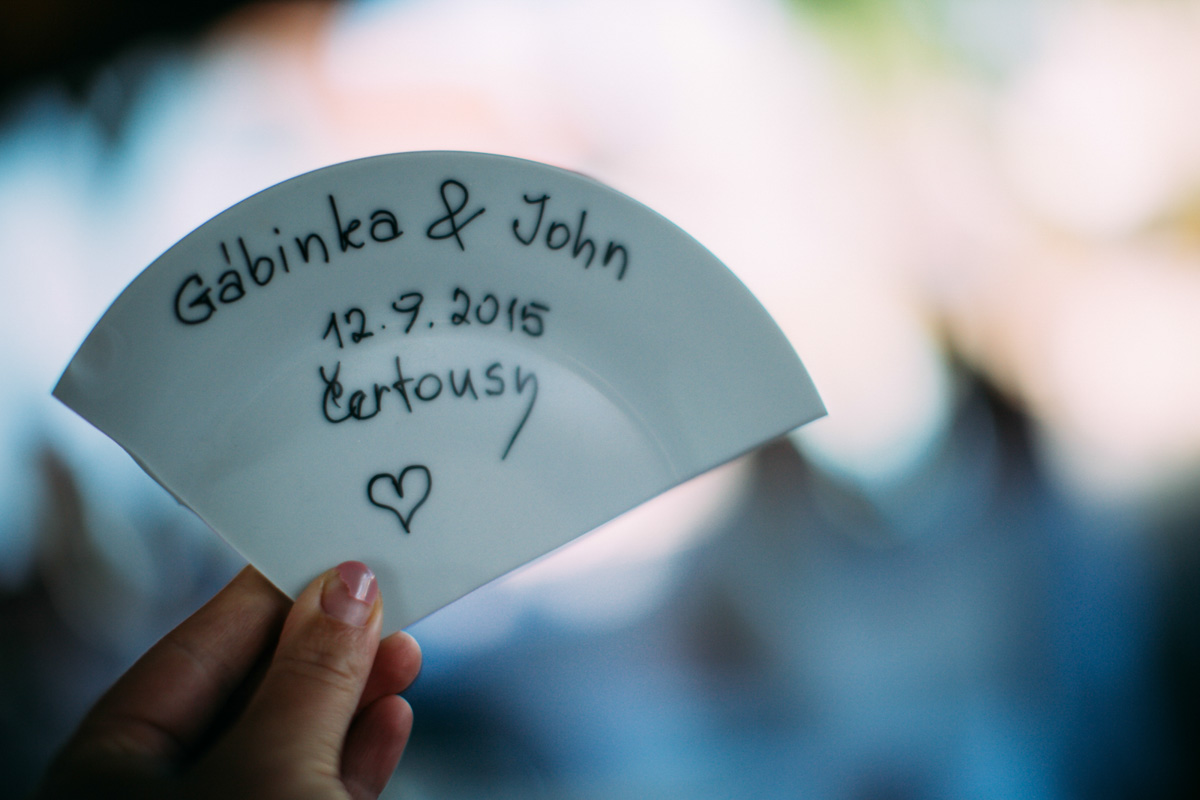 Gábinka & John
12.9.2015
Čertousy
♡